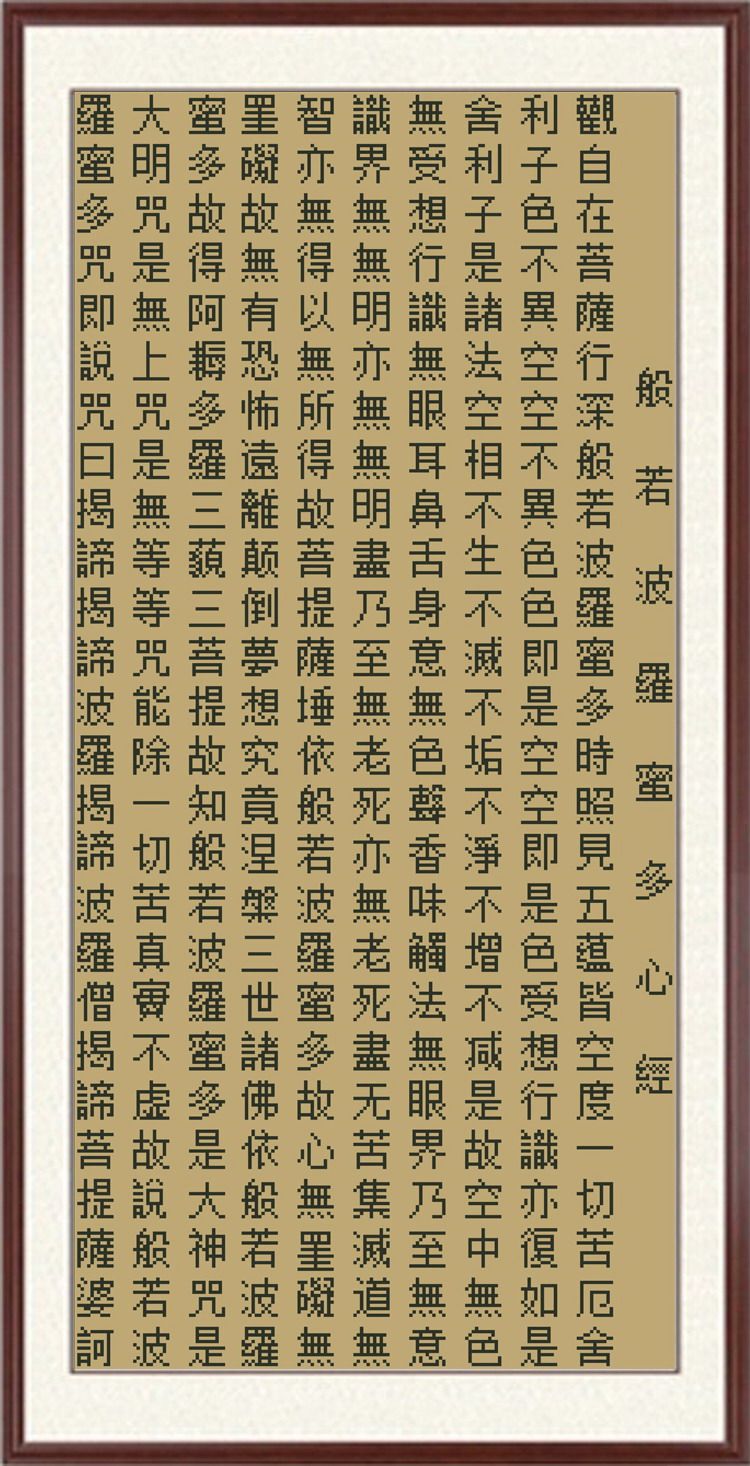 般若波羅蜜多心經
觀自在菩薩行深般若波羅蜜多時照見五蘊皆空度一切苦厄舍
利子色不異空空不異色色即是空空即是色受想行識亦復如是
舍利子是諸法空相不生不滅不垢不淨不增不减是故空中無色
無受想行識無眼耳鼻舌身意無色聲香味觸法無眼界乃至無意
識界無無明亦無無明盡乃至無老死亦無老死盡无苦集滅道無
智亦無得以無所得故菩提薩埵依般若波羅蜜多故心無罣礙無
罣礙故無有恐怖遠離顛倒夢想究竟涅槃三世諸佛依般若波羅
蜜多故得阿耨多羅三藐三菩提故知般若波羅蜜多是大神咒是
大明咒是無上咒是無等等咒能除一切苦真實不虛故說般若波
羅蜜多咒即說咒曰揭諦揭諦波羅揭諦波羅僧揭諦菩提薩婆訶